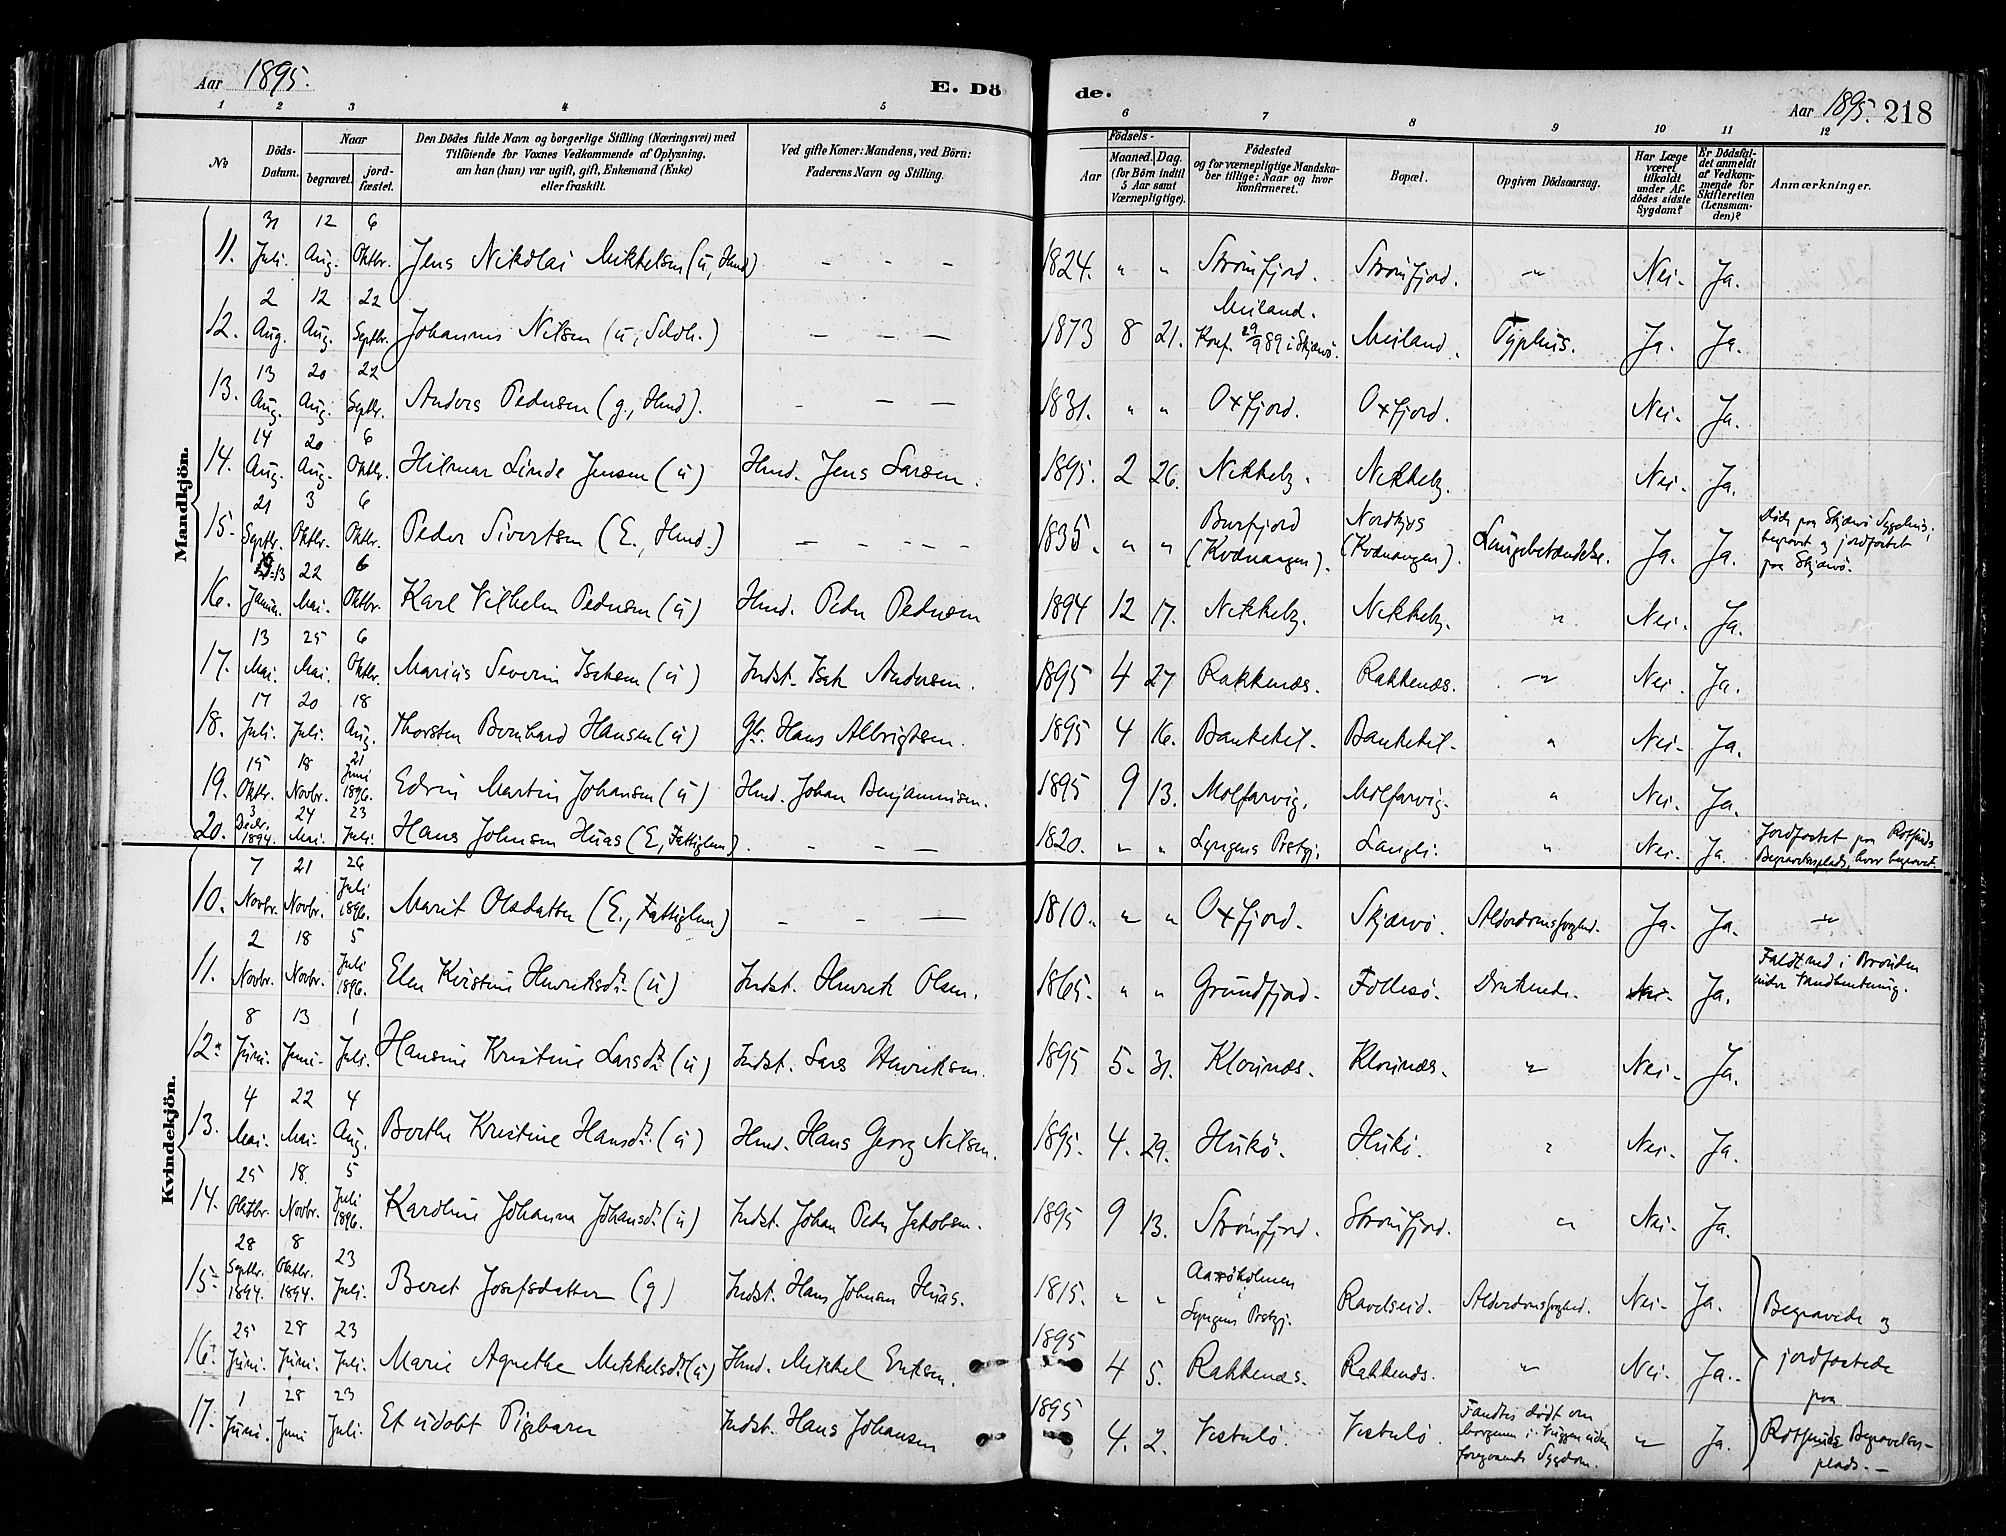 Aar 1895.
E. Dö
de.
Aar 1895. 218
1 2 3 4 5 6 7 8 9 10 11 12
No
Döds-Datum.
Naar
begravet.
jord-fæstet.
Den Dödes fulde Navn og borgerlige Stilling (Næringsvei) med
Tilföiende for Voxnes Vedkommende af Oplysning,
om han (hun) var ugift, gift, Enkemand (Enke)
eller fraskilt.
Ved gifte Koner: Mandens, ved Börn:
Faderens Navn og Stilling.
Födsels-
Aar
Maaned. Dag.
(for Börn indtil
5 Aar samt
Værnepligtige).
Födested
og for værnepligtige Mandska-
ber tillige: Naar og hvor
Konfirmeret.
Bopæl.
Opgiven Dödsaarsag.
Har Læge
været
tilkaldt
under Af-
dödes sidste
Sygdom?
Er Dödsfal-
det anmeldt
af Vedkom-
mende for
Skifteretten
(Lensman-
den)?
Anmærkninger.
Mandkjön.
11. 31 Juli. 12 Aug. 6 Oktbr. Jens Nikolai Mikkelsen (u, Hmd) – – – 1824. " " Strømfjord. Strømfjord. " Nei. Ja.
12. 2 Aug. 12 Aug. 22 Septbr. Johannes Nilsen (u, Seldh.) – – – 1873 8 21. Meiland. Konf. 29/9 89 i Skjærvö. Meiland. Typhus. Ja. Ja.
13. 13 Aug. 20 Aug. 22 Septbr. Anders Pedersen (g., Hmd). – – – 1831. " " Oxfjord. Oxfjord. Nei. Ja.
14. 14 Aug. 20 Aug. 6 Oktbr. Hilmar Linde Jensen (u) Hmd. Jens Larsen. 1895. 2 26. Nikkelby. Nikkelby. Nei. Ja.
15. 21 Septbr. 3 Oktbr. 6 Oktbr. Peder Sivertsen (E., Hmd.) – – – – 1835. " " Burfjord (Kvænangen). (Kvænangen). Lungebetændelse. Ja. Ja. Døde paa Skjærvö Sygehus, begravet og jordfæstet paa Skjærvö.
16. 13 Januar. 22 Mai. 6 Oktbr. Karl Vilhelm Pedersen (u) Hmd. Peder Pedersen 1894 12 17. Nikkelby. Nikkelby. " Nei. Ja.
17. 13 Mai. 25 Mai. 6 Oktbr. Marius Severin Isaksen (u) Indst. Isak Andersen. 1895 4 27 Rakkenæs. Rakkenæs. " Nei. Ja.
18. 17 Juli. 20 Juli. 18 Aug. Thorsten Bernhard Hansen (u) Gbr. Hans Albrigtsen. 1895 4 16. Bankekil. Bankekil. " Nei. Ja.
19. 15 Oktbr. 18 Novbr. 21 Juni 1896. Edvin Martin Johansen (u) Hmd. Johan Benjaminsen. 1895 9 13. Molfarvig. Molfarvig. " Nei. Ja.
20. 3 Decbr. 1894. 24 Mai. 23 Juli. Hans Johnsen Huas (E, Fattiglem). – – – 1820. " " Lyngens Prstgj. Langli. " Nei. Ja. Jordfæstet paa Rotsunds Begravelsesplads, hvor begravet.
Kvindekjön.
10. 7 Novbr. 21 Novbr. 26 Juli 1896. Marit Olsdatter (E., Fattiglem) – – – 1810. " " Oxfjord. Skjærvö. Alderdomssvaghed. Ja. Ja. "
11. 2 Novbr. 18 Novbr. 5 Juli 1896. Elen Kristine Henriksdtr. (u) Indst. Henrik Olsen. 1865. " " Grundfjord. Follesö. Druknede. Nei. Ja. Faldt ned i Brønden under Vandhentning.
12. 8 Juni. 13 Juni. 1 Juli. Hansine Kristine Larsdtr. (u) Indst. Lars Henriksen. 1895 5. 31. Klovnæs. Klovnæs. " Nei. Ja.
13. 4 Mai. 22 Mai. 4 Aug. Berthe Kristine Hansdtr. (u) Hmd. Hans Georg Nilsen. 1895. 4. 29. Hukö. Hukö. " Nei. Ja.
14. 25 Oktbr. 18 Novbr. 5 Juli 1896. Karoline Johanna Johansdtr. (u) Indst. Johan Peder Jakobsen. 1895 9 13. Strømfjord. Strømfjord. " Nei. Ja.
15. 28 Septbr. 1894. 8 Oktbr. 1894. 23 Juli. Beret Josefsdatter (g) Indst. Hans Johnsen Huas. 1815. " " Aaröholmen i Lyngens Prstgj. Ravelseid. Alderdomssvaghed. Nei. Ja. Begravede og
16. 25 Juni. 28 Juni. 23 Juli. Marie Agnethe Mikkelsdtr. (u) Hmd. Mikkel Eriksen. 1895 4 5. Rakkenæs. Rakkenæs. " Nei. Ja. jordfæstede paa
17. 1 Juni. 28 Juni 23 Juli. Et udøbt Pigebarn Indst. Hans Johansen 1895 4. 2. Vestulö. Vestulö. Fandtes dødt om morgenen i Vuggen uden foregaaende Sygdom. " Ja. Rotsunds Begravelses-plads.